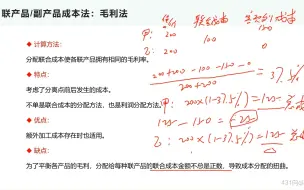 联产品/副产品成本法：毛利法
计算方法:
分配联合成本使各联产品拥有相同的毛利率。
特点:
考虑了分离点前后发生的成本。
不单是联合成本的分配方法，也是利润分配方法。
优点:
额外加工成本存在时也适用。
缺点:
为了平衡各产品的毛利，分配给每种产品的联合成本金额不总是正的，导致成本分配的扭曲。
甲: 200
乙: 200 100
200+200-100-150-0
200+200
= 37.5%
甲: 200×(1-37.5%)=125
125-150=-25
乙: 200×(1-37.5%)=125